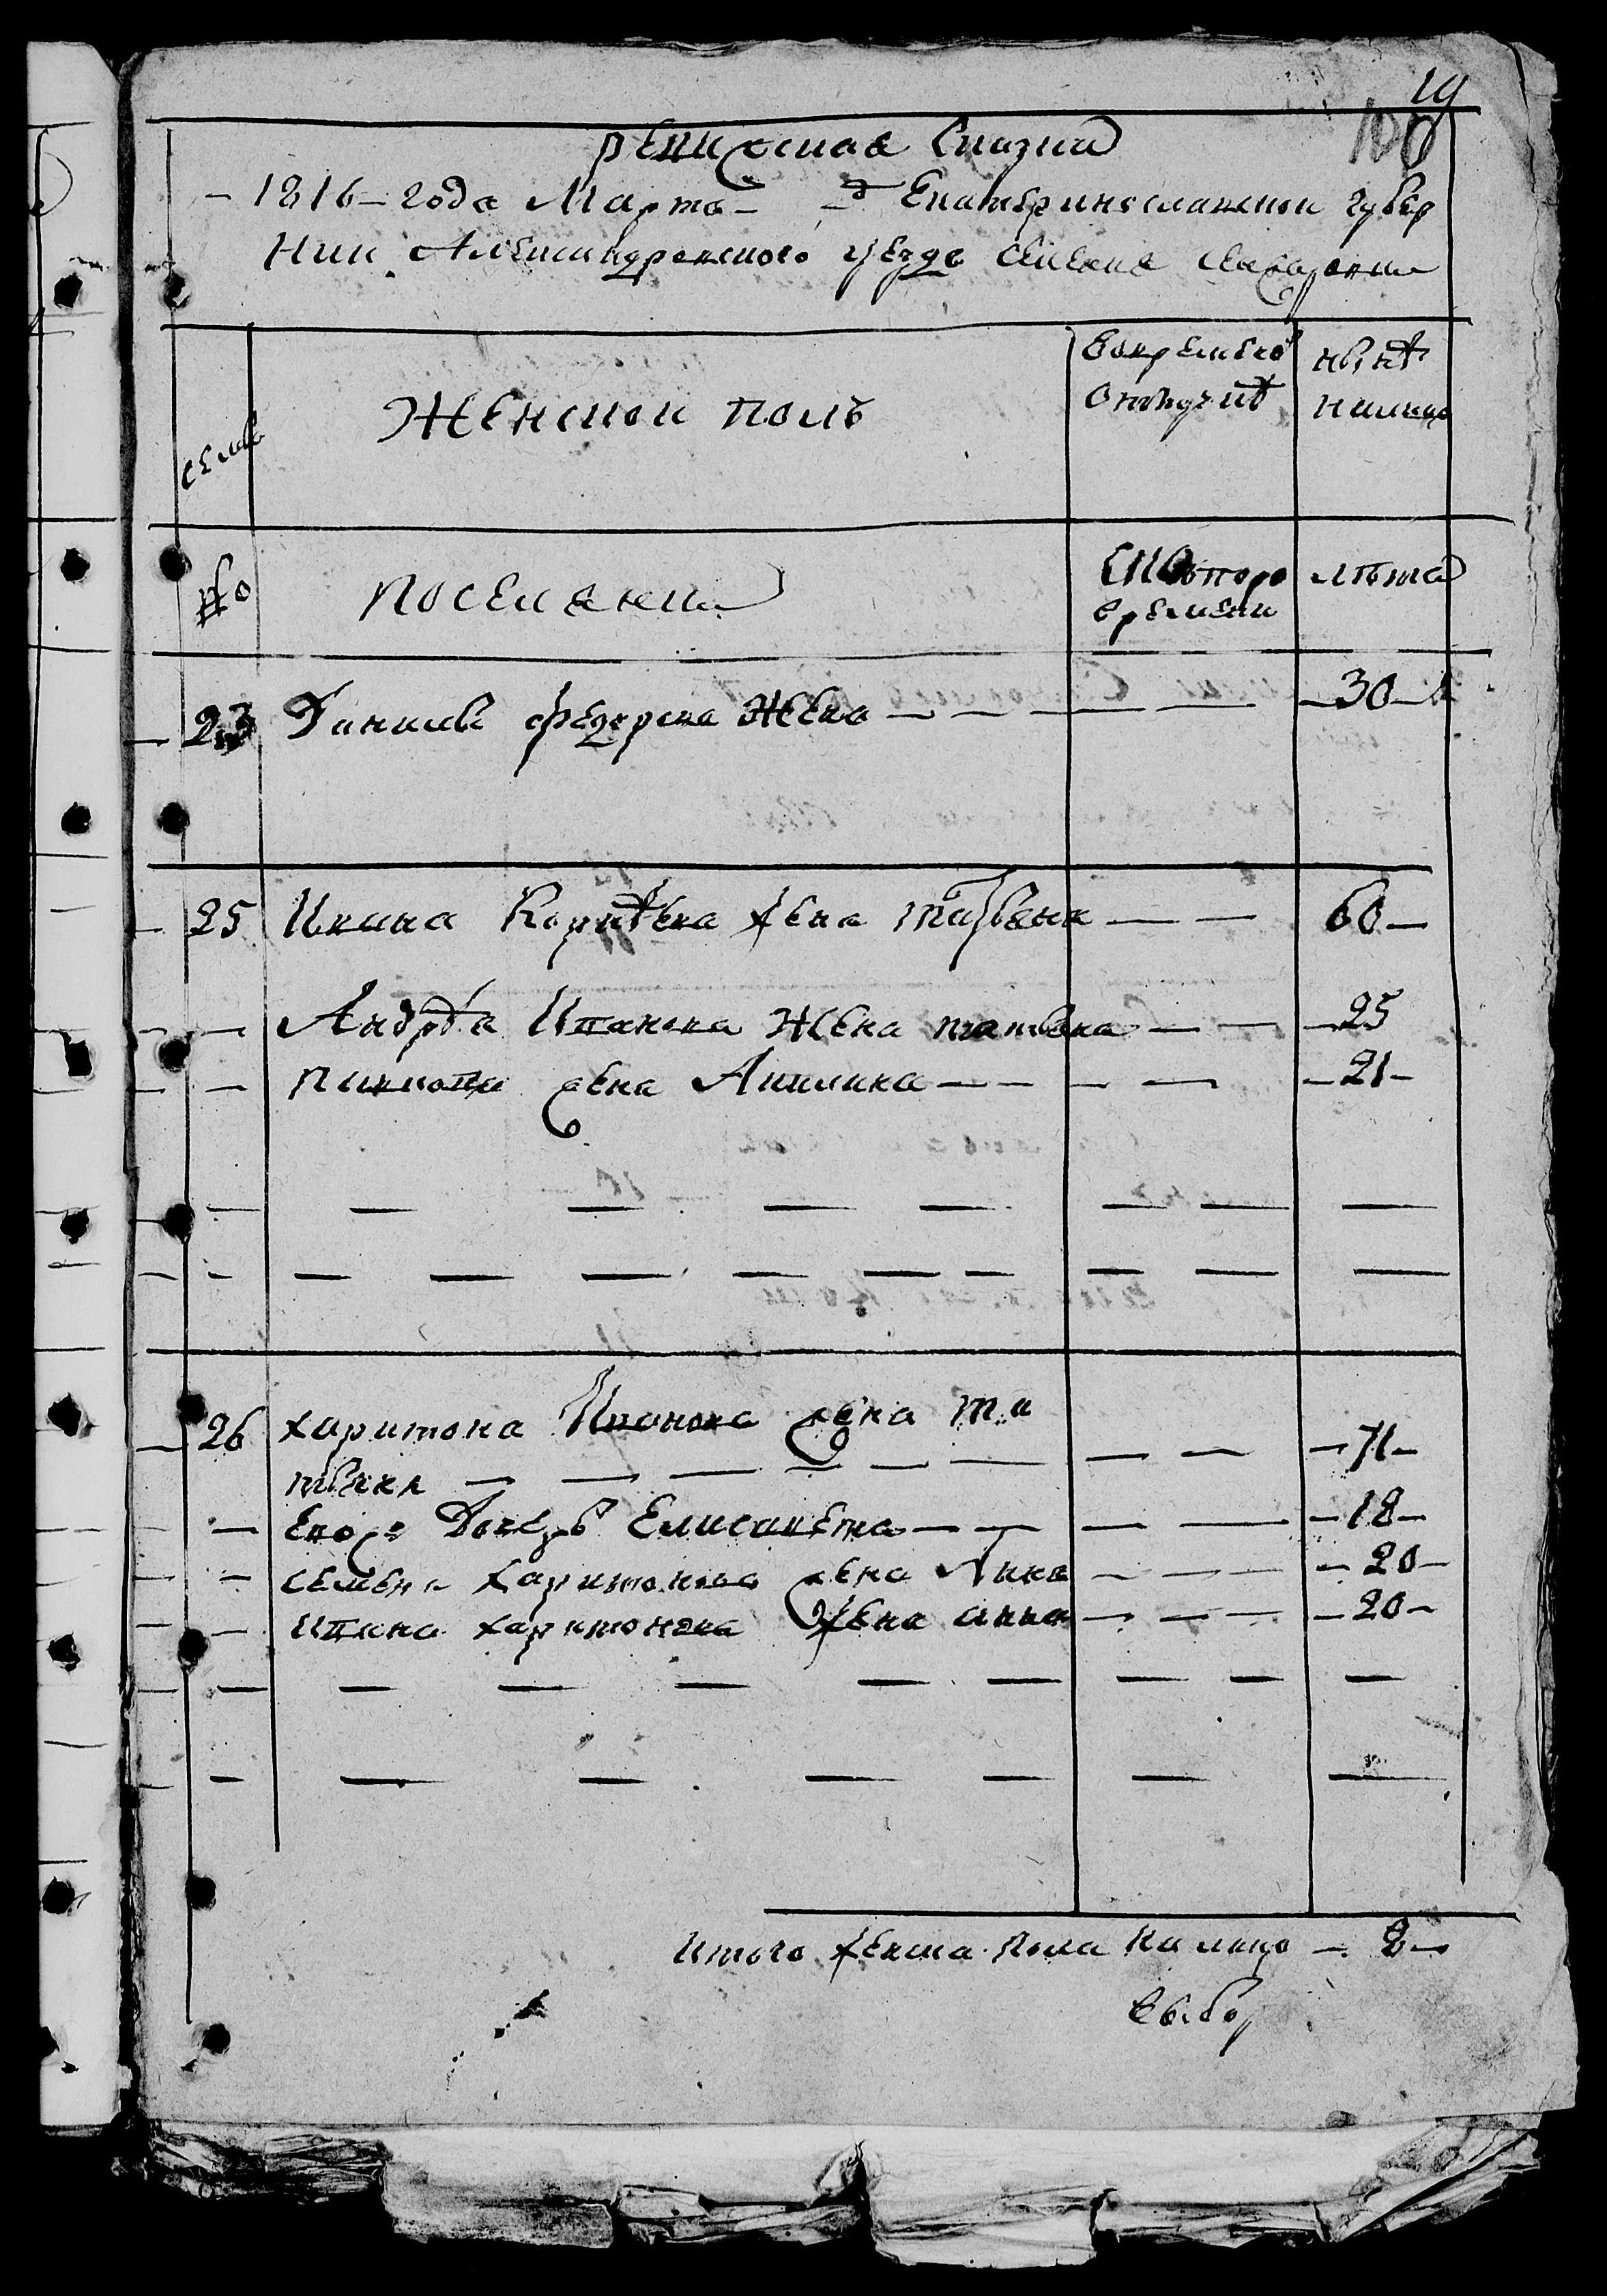 19
100
ревижская Сказка
1816 года Марта Екатеринославской губер
нии Александровского уезда селения
семьи
Женской полъ
вовремено отлучке
ныне налицо
№
Поселяне
С которо времени
лета
23 Данилы Федорова жена 30
25 Ивана жена татьяна 60
Андрѣя Иванова жена татьяна 25
жена Акилина 21
26 харитона Иванова жена та
тьяна 71
Егора Дочерь Елисавета 18
семена харитонова жена Анна 20
Ивана харитонова жена анна 20
Итого женска пола на лицо 8
выбор